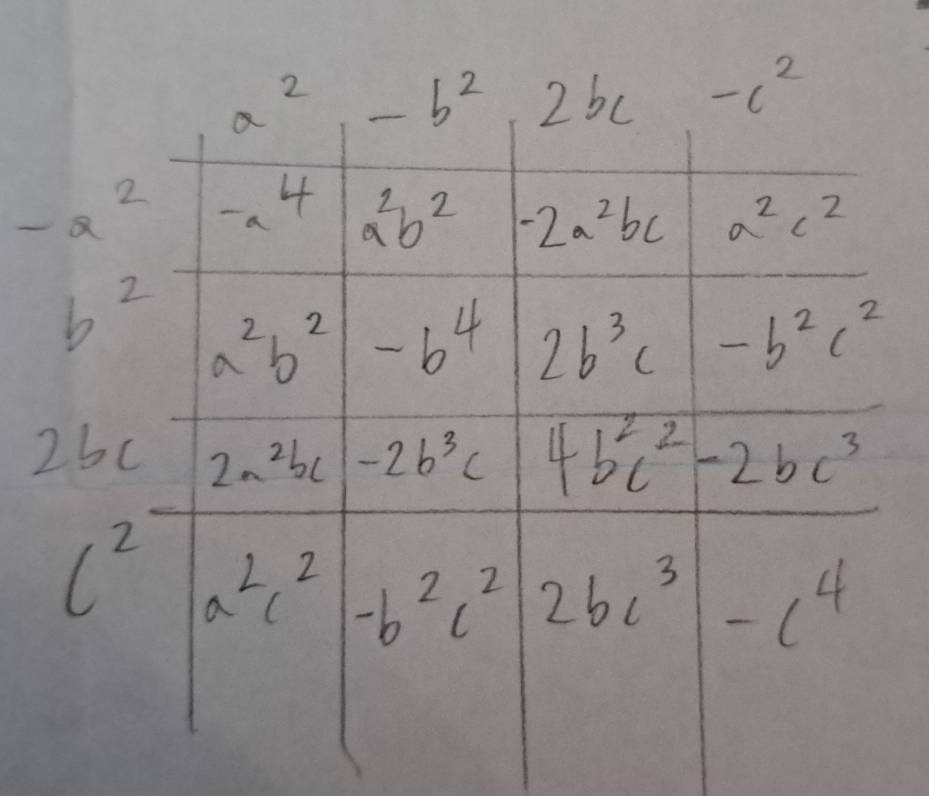 a² -b² 2bc -c²
-a² -a⁴ a²b² -2a²bc a²c²
b² a²b² -b⁴ 2b³c -b²c²
2bc 2a²bc -2b³c 4b²c² -2bc³
c² a²c² -b²c² 2bc³ -c⁴